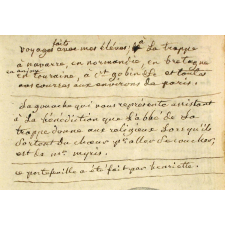 faits
voyages avec mes élèves, à La trappe
à navarre, en normandie, en bretagne
en anjou
en touraine, à et toutes
nos courses aux environs de paris.
La gouache qui nous représente assistant
à La Bénédiction que L'abbé de La
trappe donne aux religieux Lorsqu'ils
sortent du chœur pr aller se coucher;
est de mr myris.
ce portefeuille a été fait par henriette.